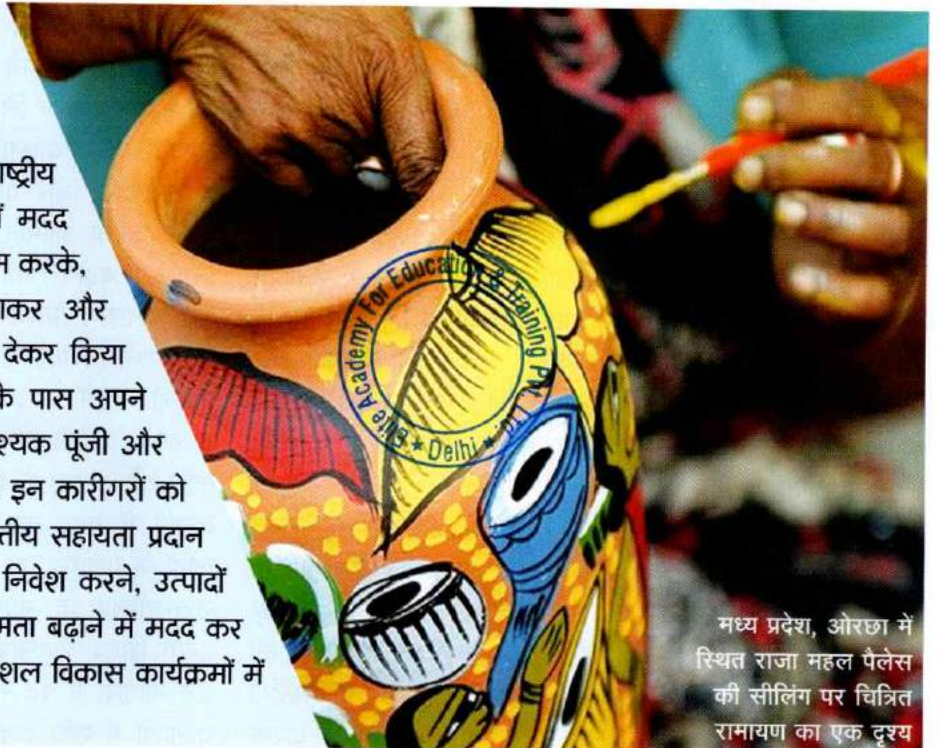 ष्ट्रीय
मदद
करके,
और
देकर किया
के पास अपने
पूंजी और
इन कारीगरों को
सहायता प्रदान
निवेश करने, उत्पादों
बढ़ाने में मदद कर
विकास कार्यक्रमों में
Elite Academy For Education & Training Pvt. Ltd.
* Delhi *
मध्य प्रदेश, ओरछा में
स्थित राजा महल पैलेस
की सीलिंग पर चित्रित
रामायण का एक दृश्य